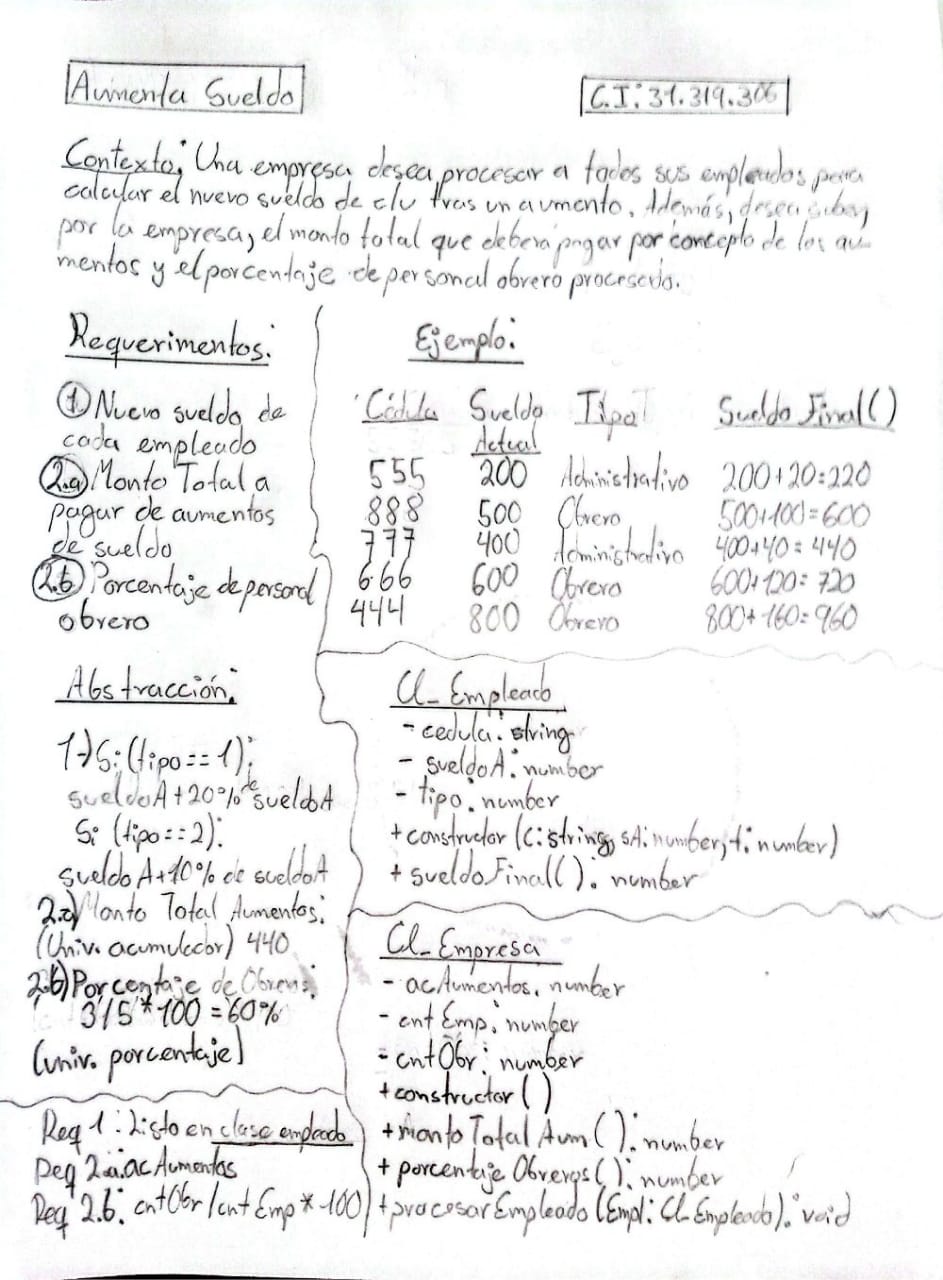 Aumenta Sueldo
C.I: 31.319.306
Contexto: Una empresa desea procesar a todos sus empleados para
calcular el nuevo sueldo de c/u tras un aumento. Además, desea saber,
por la empresa, el monto total que deberá pagar por concepto de los au-
mentos y el porcentaje de personal obrero procesado.
Requerimentos:
① Nuevo sueldo de
cada empleado
2.a) Monto Total a
pagar de aumentos
de sueldo
2.b) Porcentaje de personal
obrero
Ejemplo:
Cédula Sueldo Actual Tipo Sueldo Final()
555 200 Administrativo 200+20=220
888 500 Obrero 500+100=600
777 400 Administrativo 400+40=440
666 600 Obrero 600+120=720
444 800 Obrero 800+160=960
Abstracción:
1→Si (tipo==1):
sueldoA+20% de sueldoA
Si (tipo==2):
sueldoA+10% de sueldoA
2.a) Monto Total Aumentos:
(Univ. acumulador) 440
2.b) Porcentaje de Obreros:
3/5*100=60%
(univ. porcentaje)
Req 1: Listo en clase empleado
Req 2.a: acAumentos
Req 2.b: cntObr/cntEmp*100
Cl_Empleado
- cedula: string
- sueldoA: number
- tipo: number
+ constructor (c: string, sA: number, t: number)
+ sueldoFinal(): number
Cl_Empresa
- acAumentos: number
- cntEmp: number
- cntObr: number
+ constructor()
+ montoTotalAum(): number
+ porcentajeObreros(): number
+ procesarEmpleado (Empl: Cl_Empleado): void